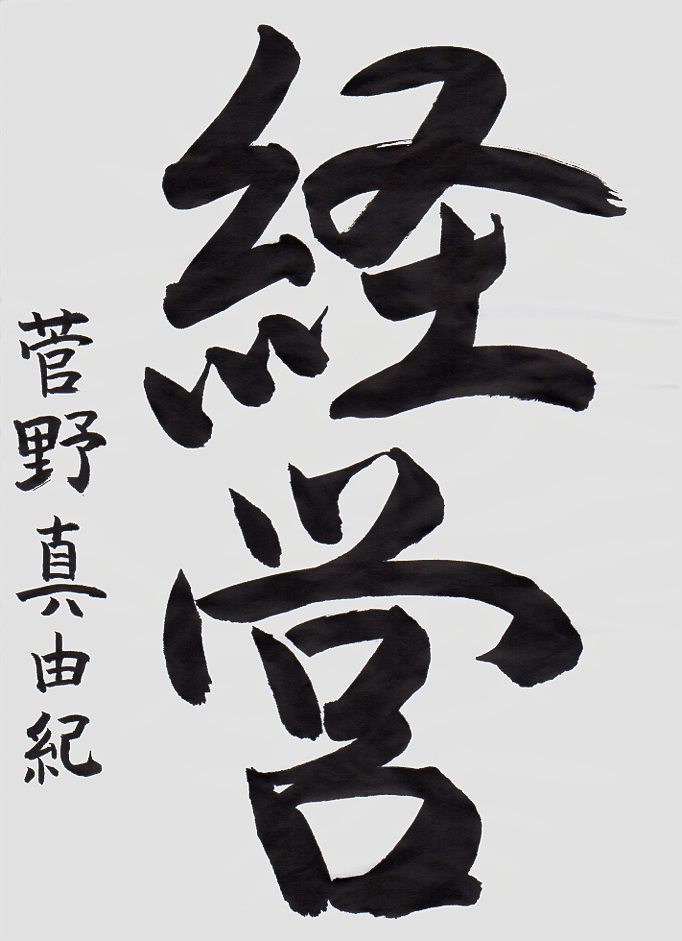 経営
菅野真由紀